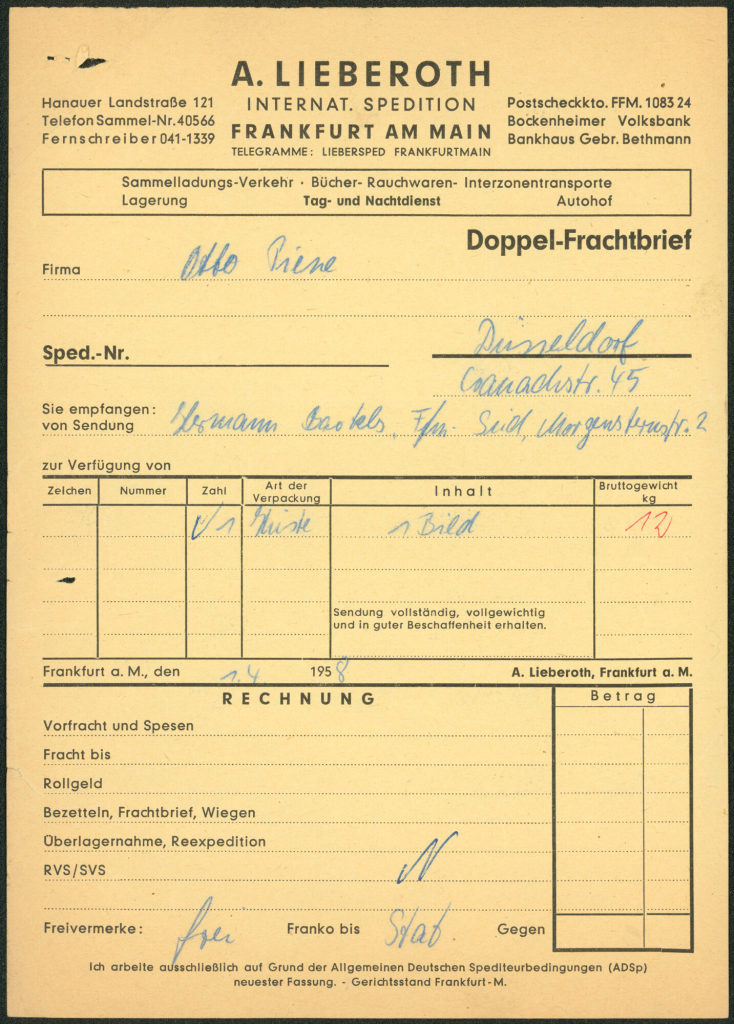 A. LIEBEROTH
INTERNAT. SPEDITION
FRANKFURT AM MAIN
TELEGRAMME: LIEBERSPED FRANKFURTMAIN
Hanauer Landstraße 121
Telefon Sammel-Nr. 40566
Fernschreiber 041-1339
Postscheckkto. FFM. 1083 24
Bockenheimer Volksbank
Bankhaus Gebr. Bethmann
Sammelladungs-Verkehr · Bücher- Rauchwaren- Interzonentransporte
Lagerung Tag- und Nachtdienst Autohof
Doppel-Frachtbrief
Firma Otto Piene
Sped.-Nr. Düsseldorf
Cranachstr. 45
Sie empfangen:
von Sendung Hermann Bartels, Ffm. Süd, Morgensternstr. 2
zur Verfügung von
Zeichen Nummer Zahl Art der Verpackung Inhalt Bruttogewicht kg
1 Kiste 1 Bild 12
Sendung vollständig, vollgewichtig
und in guter Beschaffenheit erhalten.
Frankfurt a. M., den 1.4 1958 A. Lieberoth, Frankfurt a. M.
RECHNUNG Betrag
Vorfracht und Spesen
Fracht bis
Rollgeld
Bezetteln, Frachtbrief, Wiegen
Überlagernahme, Reexpedition
RVS/SVS
Freivermerke: frei Franko bis Stat. Gegen
Ich arbeite ausschließlich auf Grund der Allgemeinen Deutschen Spediteurbedingungen (ADSp)
neuester Fassung. - Gerichtsstand Frankfurt-M.